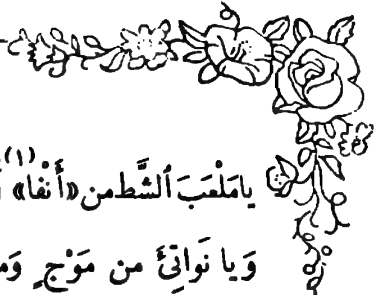 يا مَلْعَبَ ٱلشَّط من «أَنْفا» (١)
وَيا نَواتِئَ من مَوْجٍ